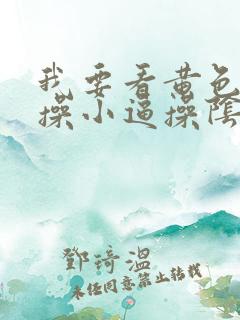 我要看黄色
操小逼操阴
鄧琦溫
未经同意禁止转载